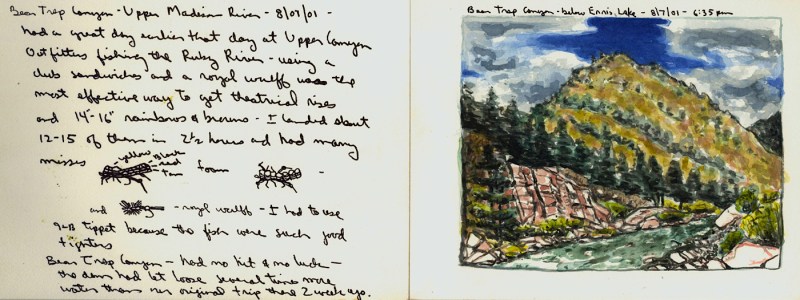 Bear Trap Canyon - Upper Madison River - 8/07/01 -
had a great day earlier that day at Upper Canyon
Outfitters fishing the Ruby River - using a
club sandwiches and a royal wulff was the
most effective way to get theatrical rises
and 14"-16" rainbows & browns - I landed about
12-15 of them in 2½ hours and had many
misses
yellow black
red
tan
foam
and - royal wulff - I had to use
tippet because the fish were such good
fighters
Bear Trap Canyon - had no hit & no luck -
the dam had let loose several times more
water than our original trip there 2 week ago.
Bear Trap Canyon - below Ennis Lake - 8/7/01 - 6:35 pm